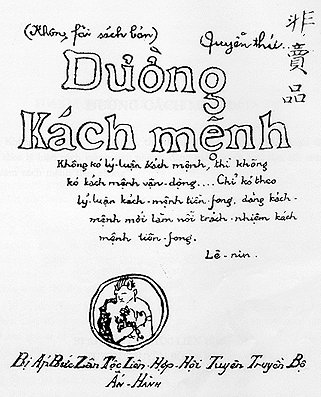 (Không fải sách bán)
Quyển thứ...
非賣品
Đường
Kách mệnh
Không kó lý-luận kách mệnh, thì không
kó kách mệnh vận-động.... Chỉ kó theo
lý-luận kách-mệnh tiền-fong, đảng kách-
mệnh mới làm nổi trách-nhiệm kách
mệnh tiền-fong.
Lê-nin.
Bị Áp Bức Zân Tộc Liên-Hợp-Hội Tuyên Truyền Bộ
Ấn-Hành